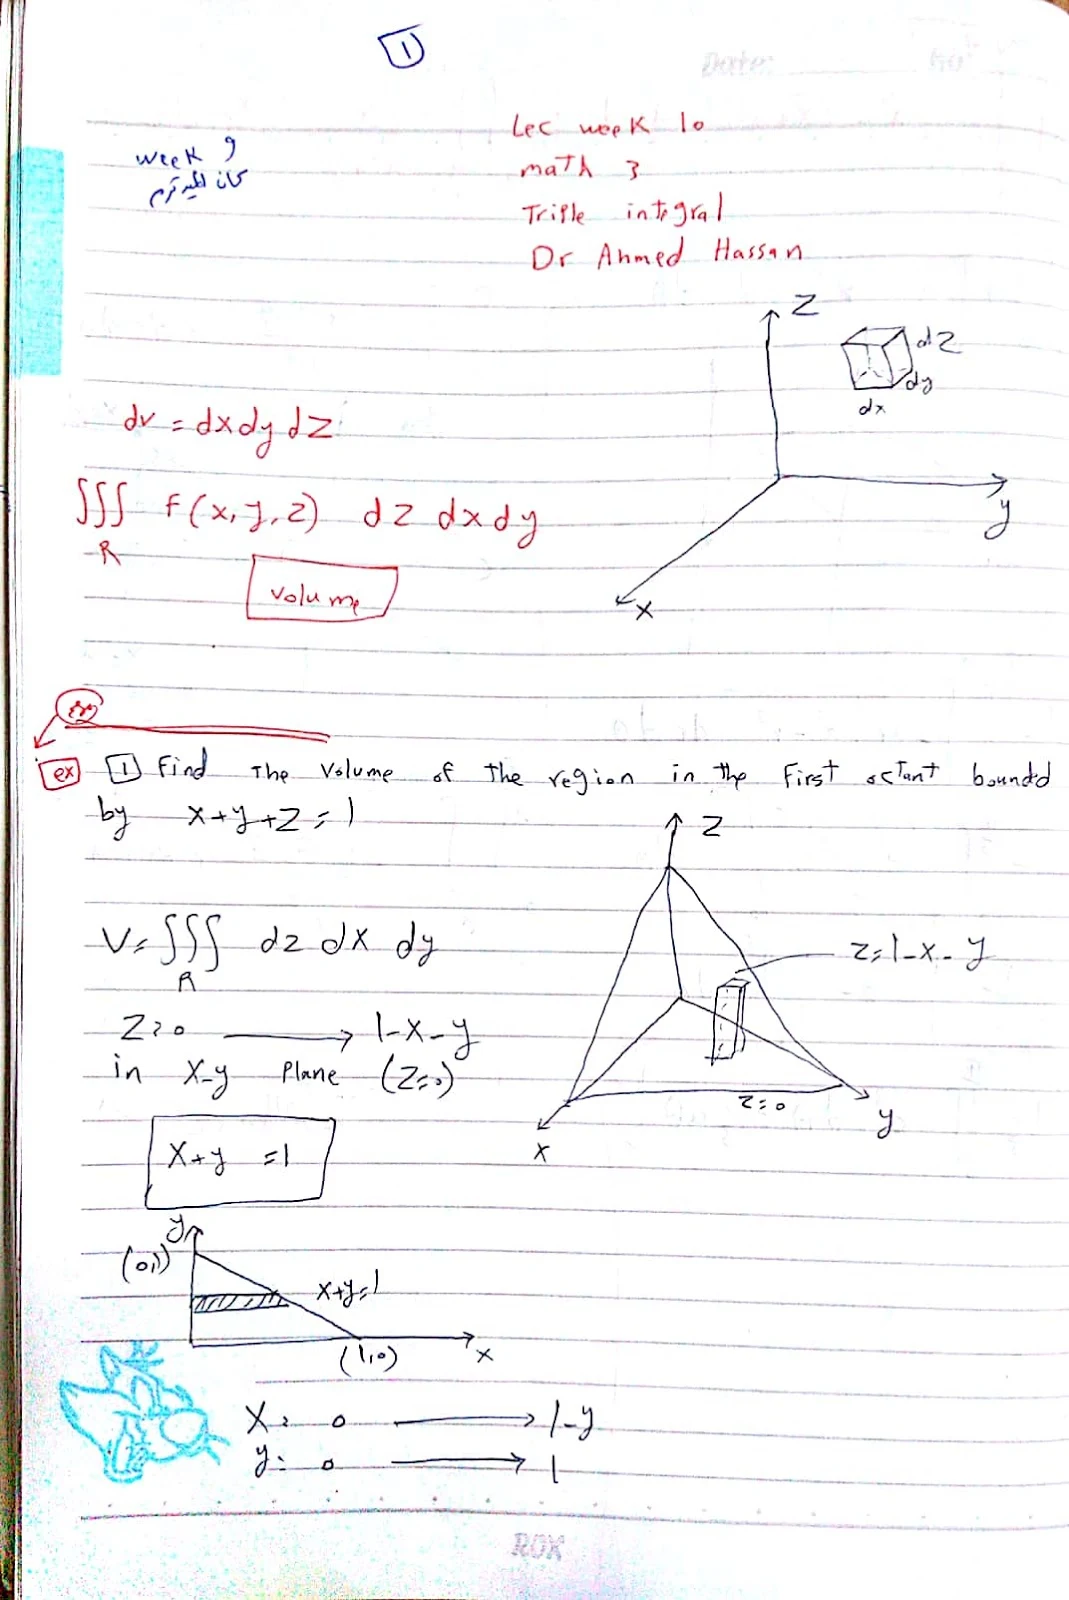 1
Date: No
Lec week 10
math 3
Triple integral
Dr Ahmed Hassan
week 9
كان الميدترم
Z
dz
dy
dx
y
x
dv = dxdy dz
∫∫∫ f(x,y,z) dz dxdy
R
volume
ex 1 Find The Volume of The region in the First octant bounded
by x+y+z=1
Z
V=∫∫∫ dz dx dy
R
z=1-x-y
Z=0 → 1-x-y
in x-y Plane (Z=0)
z=0
y
x
x+y =1
y
(0,1)
x+y=1
(1,0)
x
x= 0 → 1-y
y= 0 → 1
ROX